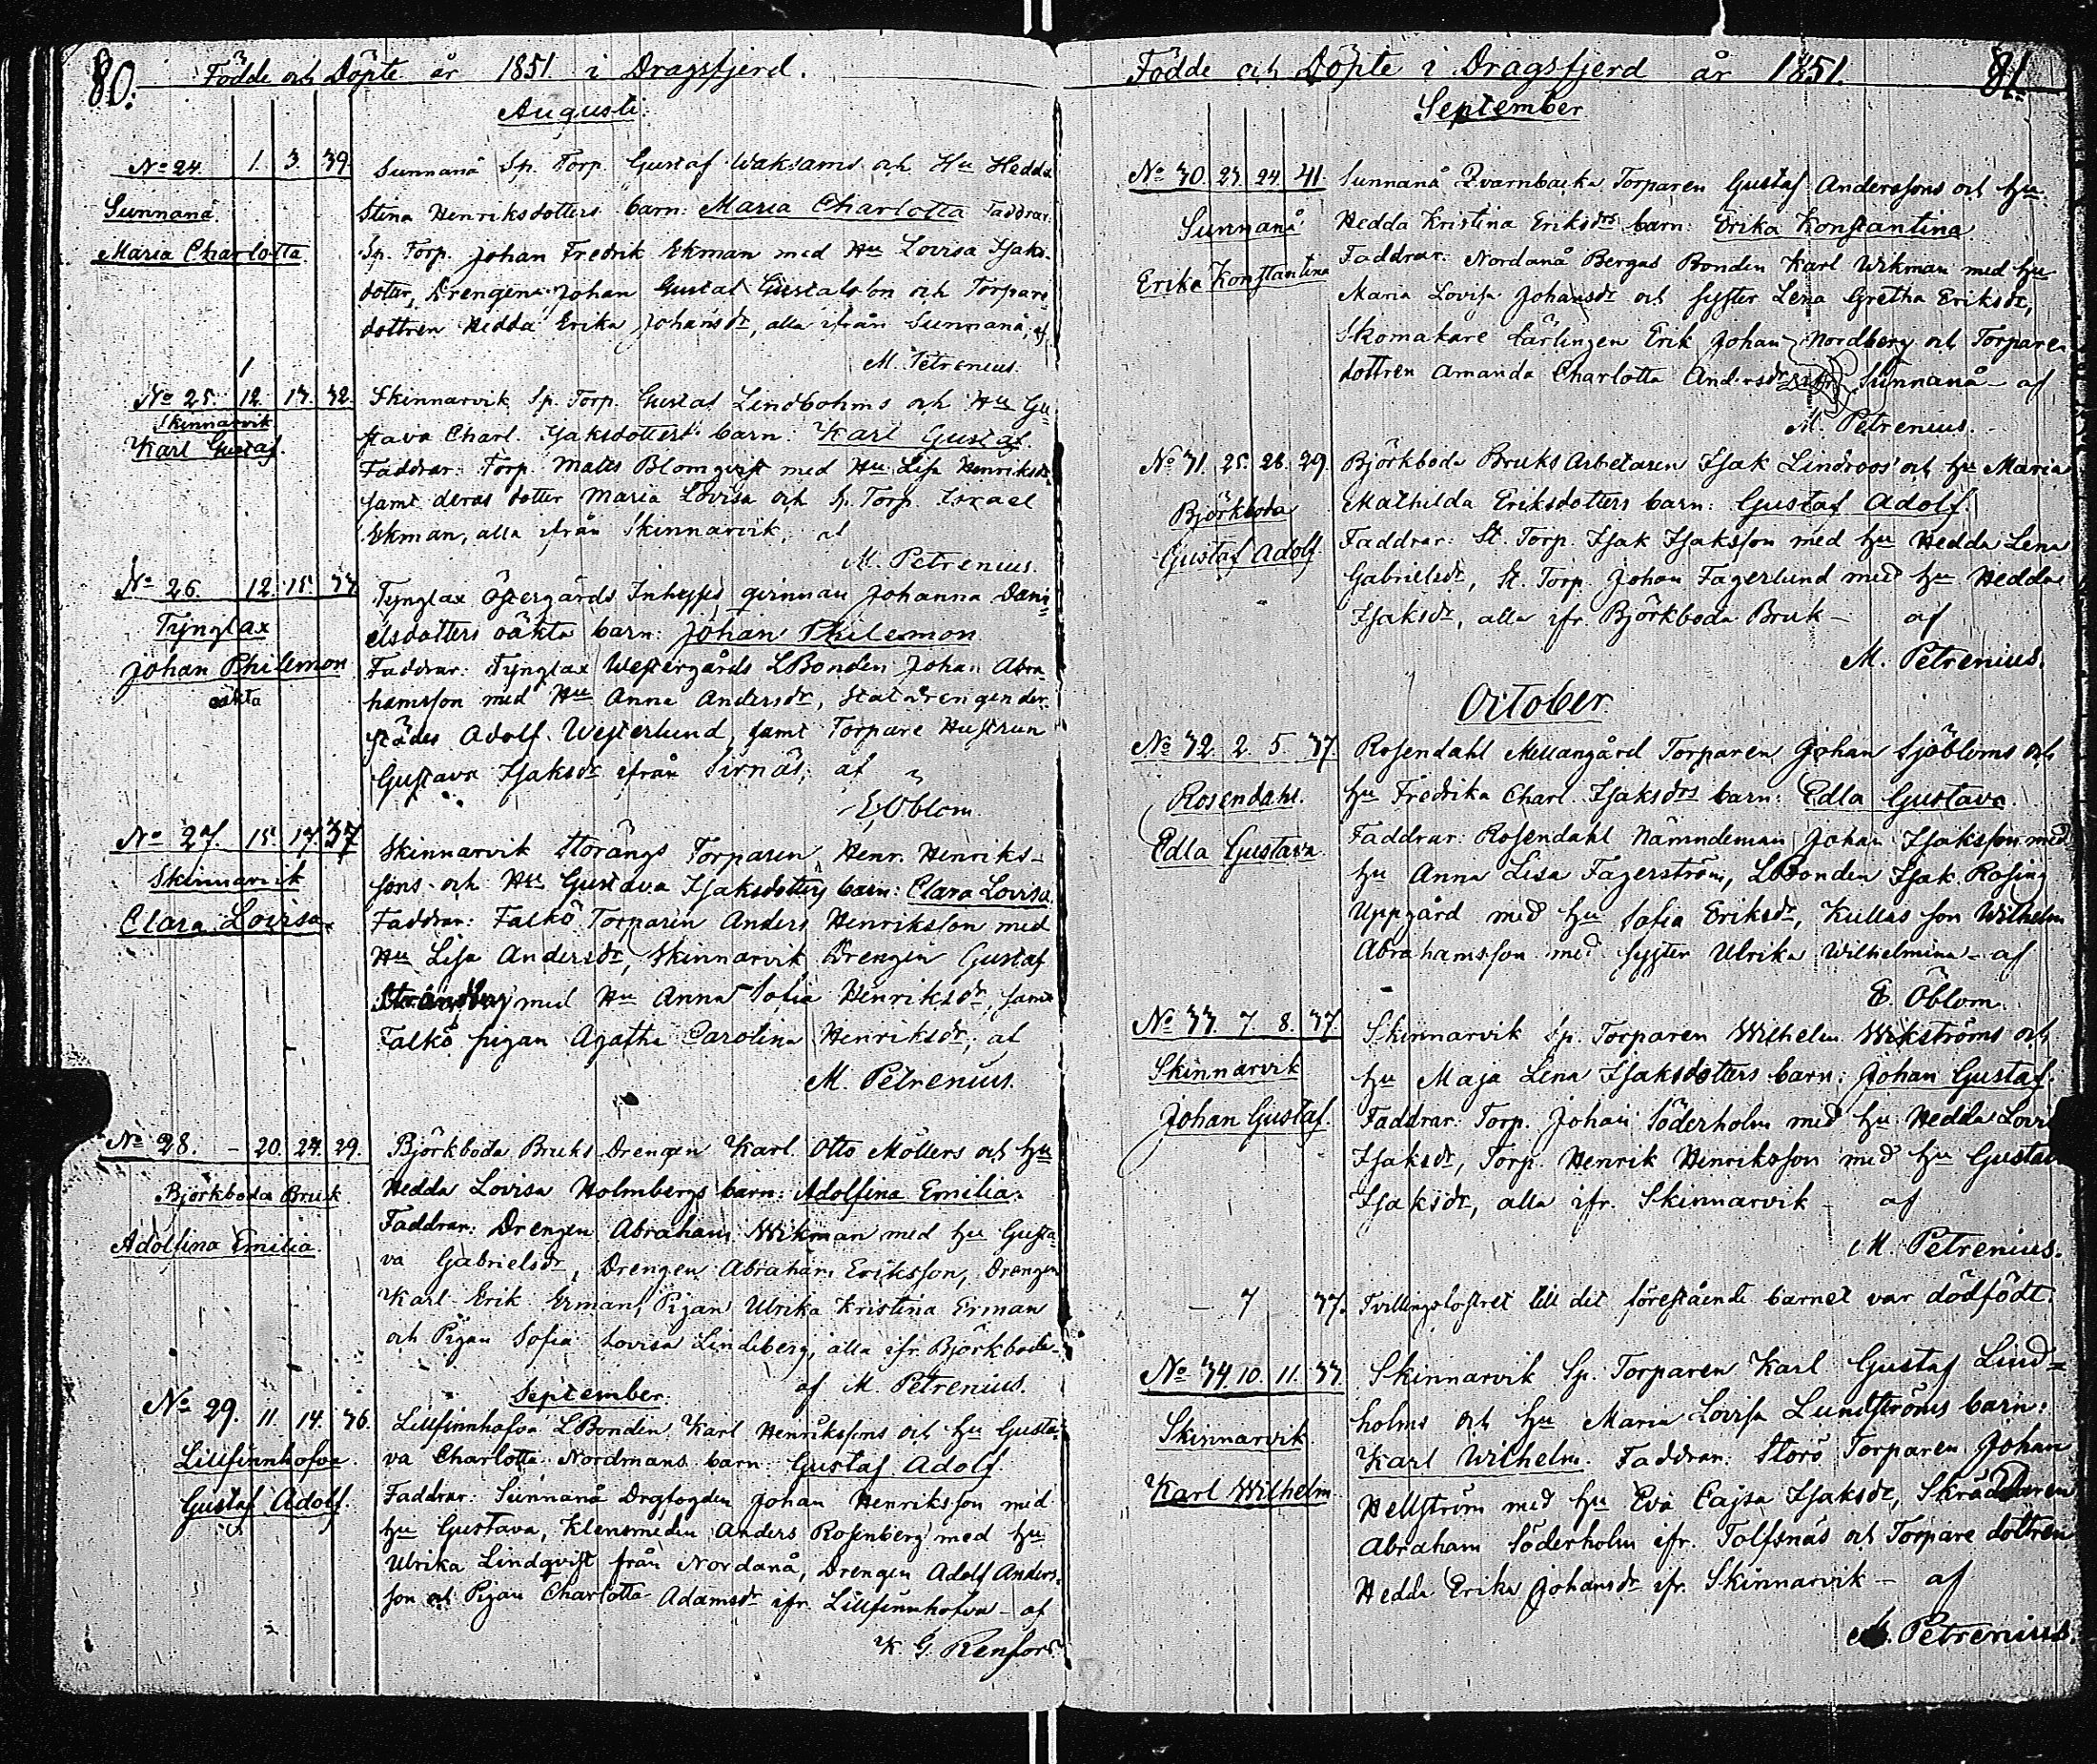 80. Födde och Döpte år 1851. i Dragsfjerd.
Augusti.
No 24. 1. 3. 39.
Sunnanå
Maria Charlotta
Sunnanå Sp. Torp. Gustaf Waksams och Hu Hedda
Stina Henriksdotters barn: Maria Charlotta Faddrar:
Sp. Torp. Johan Fredrik Ekman med Hu Lovisa Isaks-
dotter, Drengen Johan Gustaf Gustafsson och Torpare
dottren Hedda Erika Johansdr, alla ifrån Sunnanå, af
M. Petrenius.
No 25. 12. 13. 32.
Skinnarvik
Karl Gustaf.
Skinnarvik Sp. Torp. Gustaf Lindbohms och Hu Gu-
stava Charl. Isaksdotters barn: Karl Gustaf
Faddrar: Torp. Matts Blomqvist med Hu Lisa Henriksdr
samt deras dotter Maria Lovisa och Sp. Torp. Israel
Ekman, alla ifrån Skinnarvik, af
M. Petrenius.
No 26. 12. 15. 33
Tynglax
Johan Philemon
oäkta
Tynglax Östergårds Inhyses qvinnan Johanna Dani-
elsdotters oäkta barn: Johan Philemon
Faddrar: Tynglax Westergårds LBonden Johan Abra-
hamsson med Hu Anna Andersdr, Statdrengen der-
städes Adolf Westerlund, samt Torpare Hustrun
Gustava Isaksdr ifrån Sirnäs; af
E. Öblom.
No 27. 15. 17. 37
Skinnarvik
Clara Lovisa.
Skinnarvik Storängs Torparen Henr. Henriks-
sons och Hu Gustava Isaksdotters barn: Clara Lovisa.
Faddrar: Falkö Torparen Anders Henriksson med
Hu Lisa Andersdr, Skinnarvik Drengen Gustaf
Strandberg med Hu Anna Sofia Henriksdr, samt
Falkö pigan Agatha Carolina Henriksdr; af
M. Petrenius.
No 28. - 20. 24. 29.
Björkboda Bruk
Adolfina Emilia.
Björkboda Bruks Drengen Karl Otto Möllers och hu
Hedda Lovisa Holmbergs barn: Adolfina Emilia.
Faddrar: Drengen Abraham Wikman med hu Gusta-
va Gabrielsdr, Drengen Abraham Eriksson, Drengen
Karl Erik Erman, Pigan Ulrika Kristina Erman
och Pigan Sofia Lovisa Lindeberg, alla ifr. Björkboda-
af M. Petrenius.
September.
No 29. 11. 14. 36.
Lillfinnhofva.
Gustaf Adolf.
Lillfinnhofva LBonden Karl Henrikssons och hu Gusta-
va Charlotta Nordmans barn Gustaf Adolf.
Faddrar: Sunnanå Drgfogden Johan Henriksson med
hu Gustava, Klensmeden Anders Rosenberg med hu
Ulrika Lindqvist från Nordanå, Drengen Adolf Anders-
son och Pigan Charlotta Adamsdr ifr. Lillfinnhofva - af
K. G. Renfors
Födde och Döpte i Dragsfjerd år 1851. 81.
September
No 30. 23. 24. 41.
Sunnanå
Erika Konstantina
Sunnanå Qvarnbacka Torparen Gustaf Anderssons och hu
Hedda Kristina Eriksdrs barn: Erika Konstantina.
Faddrar: Nordanå Bergas Bonden Karl Wikman med hu
Maria Lovisa Johansdr och syster Lena Gretha Eriksdr,
Skomakare lärlingen Erik Johan Nordberg och Torpare
dottren Amanda Charlotta Andersdr Sunnanå - af
M. Petrenius.
No 31. 25. 28. 29.
Björkboda
Gustaf Adolf.
Björkboda Bruks Arbetaren Isak Lindroos' och hu Maria
Mathilda Eriksdotters barn: Gustaf Adolf.
Faddrar: St. Torp. Isak Isaksson med hu Hedda Lena
Gabrielsdr, St. Torp. Johan Fagerlund med hu Hedda
Isaksdr, alla ifr. Björkboda Bruk - af
M. Petrenius.
October
No 32. 2. 5. 37.
Rosendahl.
Edla Gustava.
Rosendahl Mellangård Torparen Johan Sjöbloms och
hu Fredrika Charl. Isaksdrs barn: Edla Gustava.
Faddrar: Rosendahl Nämndeman Johan Isaksson med
hu Anna Lisa Fagerström, LBonden Isak Rosing
Uppgård med hu Sofia Eriksdr, Kullas son Wilhelm
Abrahamsson med syster Ulrika Wilhelmina - af
E. Öblom.
No 33. 7. 8. 37.
Skinnarvik
Johan Gustaf.
Skinnarvik Sp. Torparen Wilhelm Wikströms och
hu Maja Lena Isaksdotters barn: Johan Gustaf.
Faddrar: Torp. Johan Söderholm med hu Hedda Lovi
Isaksdr, Torp. Henrik Henriksson med hu Gustav
Isaksdr, alla ifr. Skinnarvik - af
M. Petrenius.
- 7 37. Tvillingsfostret till det förestående barnet var dödfödt.
No 34. 10. 11. 33.
Skinnarvik.
Karl Wilhelm.
Skinnarvik Sp. Torparen Karl Gustaf Lind-
holms och hu Maria Lovisa Lundströms barn:
Karl Wilhelm. Faddrar: Storö Torparen Johan
Hellström med hu Eva Cajsa Isaksdr, Skräddaren
Abraham Söderholm ifr. Tolfsnäs och Torpare dottren
Hedda Erika Johansdr ifr. Skinnarvik - af
M. Petrenius.